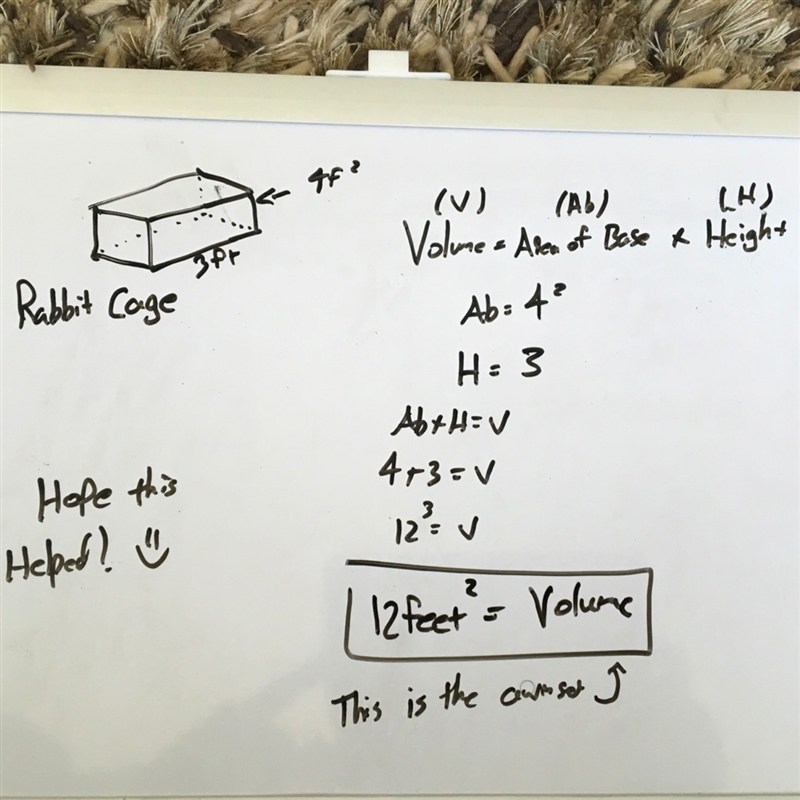 4f²
3ft
Rabbit Cage
(V) (Ab) (H)
Volume = Area of Base x Height
Ab = 4²
H = 3
Ab x H = V
4 x 3 = V
12³ = V
12 feet² = Volume
This is the
Hope this
Helped! :)